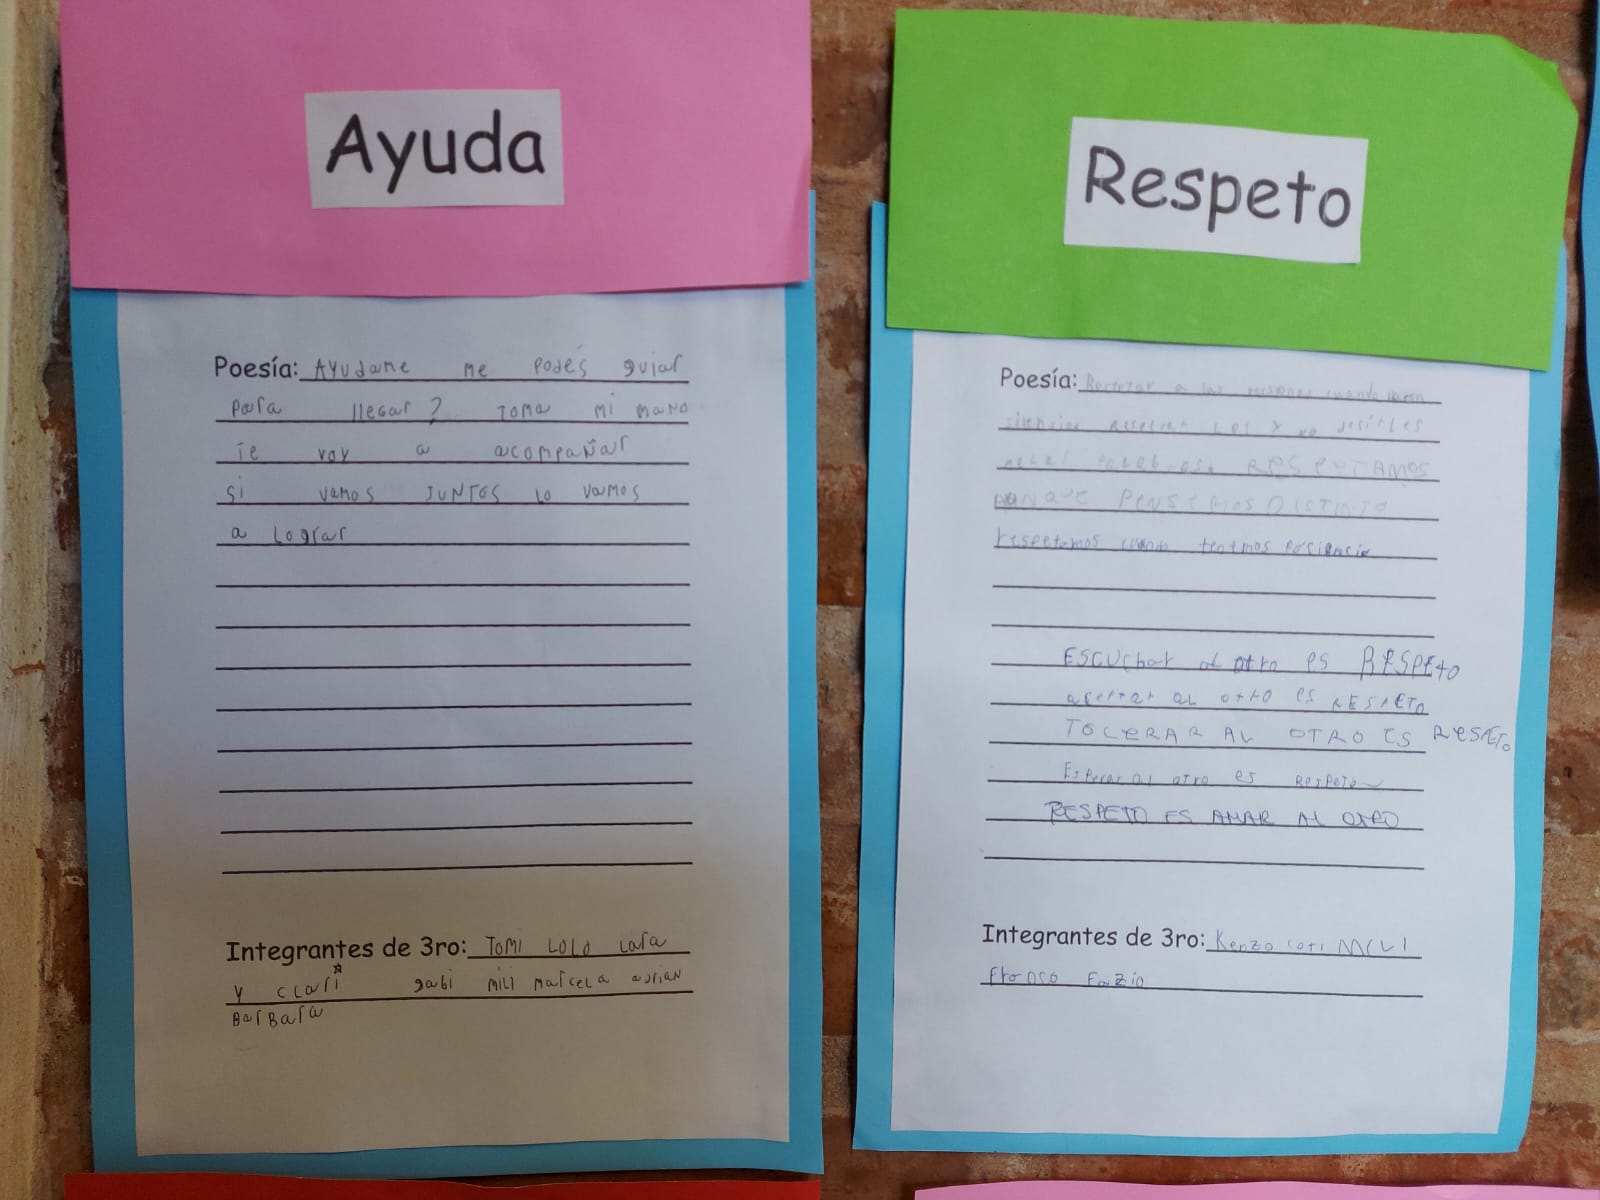 Ayuda
Poesía: AYUdame me podés guiar
para llegar? Toma mi mano
te voy a acompañar
si vamos JUNTOS lo vamos
a Lograr
Integrantes de 3ro: TOMI LOLO Lara
y clari gabi mili marcela adrian
BarBara
Respeto
Poesía: a las personas cuando
silencio y no
RESPETAMOS
DISTINTO
respetamos cuando tenemos pasiencia
ESCUchar al otro es RESPEto
aceptar al otro es RESPETO
TOLERAR AL OTRO ES RESPETO
Esperar al otro es RESPETO
RESPETO ES AMAR AL OTRO
Integrantes de 3ro: Kenzo cati
Fazio